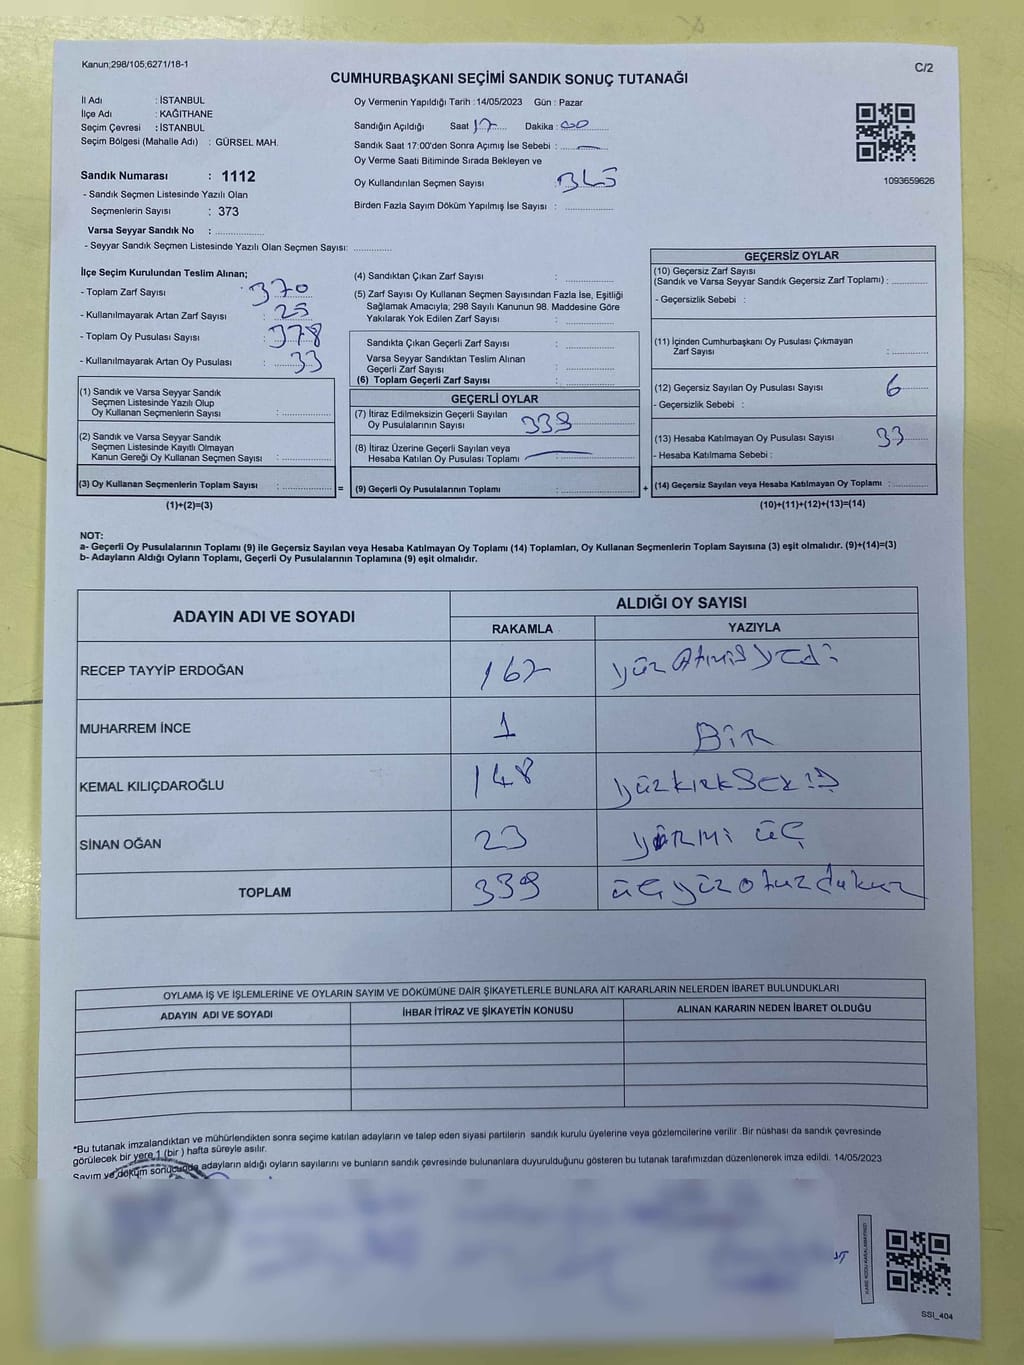 Kanun;298/105,6271/18-1
C/2
CUMHURBAŞKANI SEÇİMİ SANDIK SONUÇ TUTANAĞI
İl Adı : İSTANBUL
İlçe Adı : KAĞITHANE
Seçim Çevresi : İSTANBUL
Seçim Bölgesi (Mahalle Adı) : GÜRSEL MAH.
Sandık Numarası : 1112
- Sandık Seçmen Listesinde Yazılı Olan
Seçmenlerin Sayısı : 373
Varsa Seyyar Sandık No : ...............
- Seyyar Sandık Seçmen Listesinde Yazılı Olan Seçmen Sayısı: ............
Oy Vermenin Yapıldığı Tarih : 14/05/2023 Gün : Pazar
Sandığın Açıldığı Saat 17 Dakika : 00
Sandık Saat 17:00'den Sonra Açımış İse Sebebi : —
Oy Verme Saati Bitiminde Sırada Bekleyen ve
Oy Kullandırılan Seçmen Sayısı
Birden Fazla Sayım Döküm Yapılmış İse Sayısı : ...............
1093659626
İlçe Seçim Kurulundan Teslim Alınan;
- Toplam Zarf Sayısı : 370
- Kullanılmayarak Artan Zarf Sayısı : 25
- Toplam Oy Pusulası Sayısı : 378
- Kullanılmayarak Artan Oy Pusulası : 33
(1) Sandık ve Varsa Seyyar Sandık
Seçmen Listesinde Yazılı Olup
Oy Kullanan Seçmenlerin Sayısı : ...............
(2) Sandık ve Varsa Seyyar Sandık
Seçmen Listesinde Kayıtlı Olmayan
Kanun Gereği Oy Kullanan Seçmen Sayısı : ...............
(3) Oy Kullanan Seçmenlerin Toplam Sayısı : ...............
(1)+(2)=(3)
=
(4) Sandıktan Çıkan Zarf Sayısı : ...............
(5) Zarf Sayısı Oy Kullanan Seçmen Sayısından Fazla İse, Eşitliği
Sağlamak Amacıyla; 298 Sayılı Kanunun 98. Maddesine Göre
Yakılarak Yok Edilen Zarf Sayısı : ...............
Sandıkta Çıkan Geçerli Zarf Sayısı : ...............
Varsa Seyyar Sandıktan Teslim Alınan
Geçerli Zarf Sayısı : ...............
(6) Toplam Geçerli Zarf Sayısı : ...............
GEÇERLİ OYLAR
(7) İtiraz Edilmeksizin Geçerli Sayılan
Oy Pusulalarının Sayısı : 339
(8) İtiraz Üzerine Geçerli Sayılan veya
Hesaba Katılan Oy Pusulası Toplamı : —
(9) Geçerli Oy Pusulalarının Toplamı : ...............
+
GEÇERSİZ OYLAR
(10) Geçersiz Zarf Sayısı
(Sandık ve Varsa Seyyar Sandık Geçersiz Zarf Toplamı) : ............
- Geçersizlik Sebebi :
(11) İçinden Cumhurbaşkanı Oy Pusulası Çıkmayan
Zarf Sayısı : ............
(12) Geçersiz Sayılan Oy Pusulası Sayısı 6
- Geçersizlik Sebebi :
(13) Hesaba Katılmayan Oy Pusulası Sayısı 33
- Hesaba Katılmama Sebebi :
(14) Geçersiz Sayılan veya Hesaba Katılmayan Oy Toplamı : ............
(10)+(11)+(12)+(13)=(14)
NOT:
a- Geçerli Oy Pusulalarının Toplamı (9) ile Geçersiz Sayılan veya Hesaba Katılmayan Oy Toplamı (14) Toplamları, Oy Kullanan Seçmenlerin Toplam Sayısına (3) eşit olmalıdır. (9)+(14)=(3)
b- Adayların Aldığı Oyların Toplamı, Geçerli Oy Pusulalarının Toplamına (9) eşit olmalıdır.
ADAYIN ADI VE SOYADI
ALDIĞI OY SAYISI
RAKAMLA YAZIYLA
RECEP TAYYİP ERDOĞAN 167 yüz Atmış yedi
MUHARREM İNCE 1 BİR
KEMAL KILIÇDAROĞLU 148 yüzkırk sekiz
SİNAN OĞAN 23 yirmi üç
TOPLAM 339 üç yüz otuz dokuz
OYLAMA İŞ VE İŞLEMLERİNE VE OYLARIN SAYIM VE DÖKÜMÜNE DAİR ŞİKAYETLERLE BUNLARA AİT KARARLARIN NELERDEN İBARET BULUNDUKLARI
ADAYIN ADI VE SOYADI İHBAR İTİRAZ VE ŞİKAYETİN KONUSU ALINAN KARARIN NEDEN İBARET OLDUĞU
*Bu tutanak imzalandıktan ve mühürlendikten sonra seçime katılan adayların ve talep eden siyasi partilerin sandık kurulu üyelerine veya gözlemcilerine verilir .Bir nüshası da sandık çevresinde
görülecek bir yere 1 (bir ) hafta süreyle asılır.
Sayım ve döküm sonucunda adayların aldığı oyların sayılarını ve bunların sandık çevresinde bulunanlara duyurulduğunu gösteren bu tutanak tarafımızdan düzenlenerek imza edildi. 14/05/2023
SSI_404